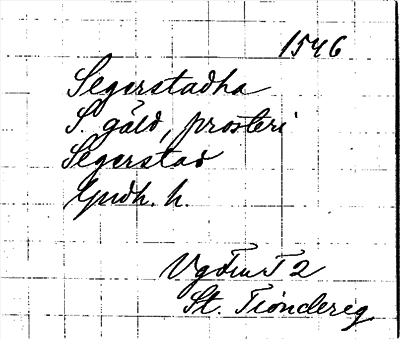 1546
Segerstadha
S. gäld, prosteri
Segerstad
Gudh. h.
Vg Tiu T 2
St. Tiondereg